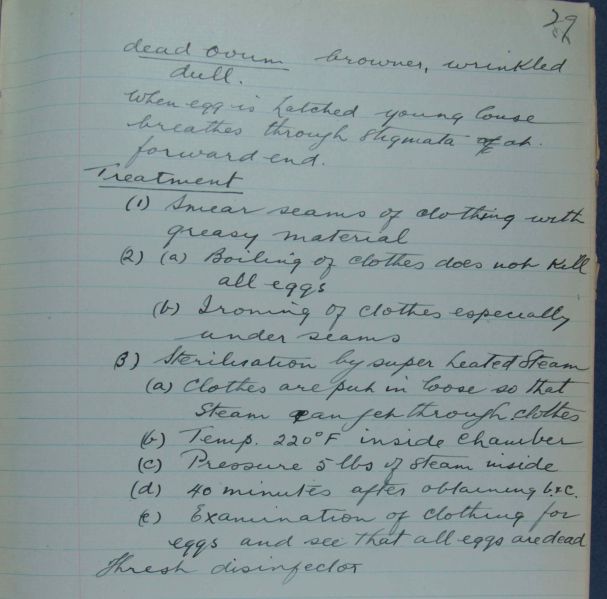 29
dead ovum browner, wrinkled
dull.
When egg is hatched young louse
breathes through stigmata at
forward end.
Treatment
(1) Smear seams of clothing with
greasy material
(2) (a) Boiling of clothes does not kill
all eggs
(b) Ironing of clothes especially
under seams
3) Sterilisation by super heated Steam
(a) Clothes are put in loose so that
Steam can get through clothes
(b) Temp. 220°F inside Chamber
(c) Pressure 5 lbs of steam inside
(d) 40 minutes after obtaining b+c.
(e) Examination of clothing for
eggs and see that all eggs are dead
Thresh disinfector